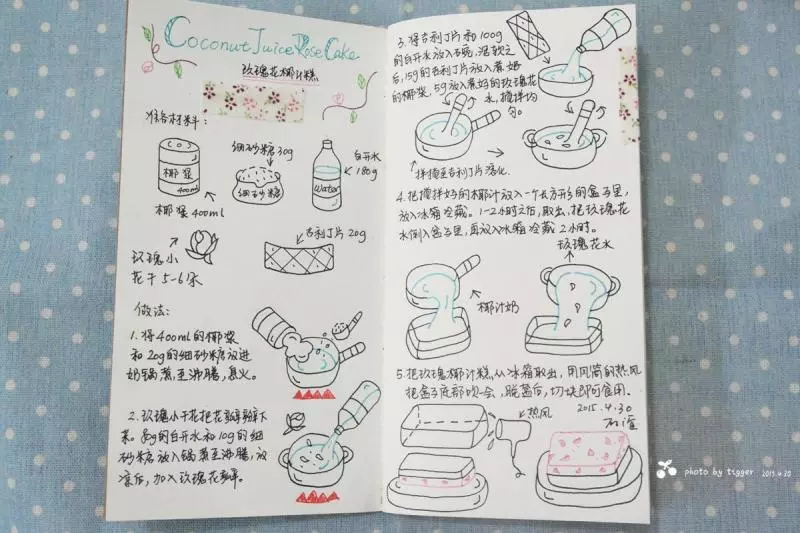 Coconut Juice Rose Cake
玫瑰花椰汁糕
准备材料:
椰浆
400ml
椰浆400ml
细砂糖30g
细砂糖
白开水
180g
Water
玫瑰小
花干5-6朵
吉利丁片20g
做法:
1.将400ml的椰浆
和20g的细砂糖放进
奶锅煮至沸腾,熄火。
2.玫瑰小干花把花瓣掰下
来。80g的白开水和10g的细
砂糖放入锅煮至沸腾,放
凉后,加入玫瑰花瓣。
3.将吉利丁片和100g
的白开水放入碗,泡软之
后,15g的吉利丁片放入煮奶
的椰浆,5g放入煮好的玫瑰花
水,搅拌均
匀。
拌搅至吉利丁片溶化.
4.把搅拌好的椰汁放入一个长方形的盒子里,
放入冰箱冷藏。1-2小时之后,取出,把玫瑰花
水倒入盒子里,再放入冰箱冷藏2小时。
玫瑰花水
椰汁奶
5.把玫瑰椰汁糕,从冰箱取出,用风筒的热风
把盒子底部吹一会,脱盖后,切块即可食用。
2015.4.30
热风
photo by tigger 2015.4.30